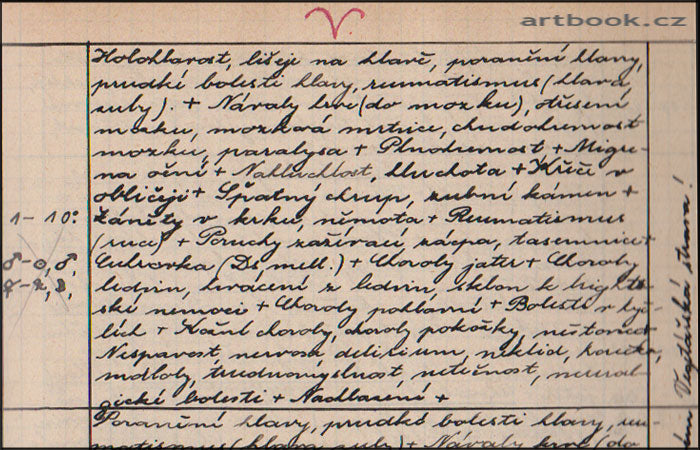 artbook.cz
♈
Holohlavost, lišeje na hlavě, poranění hlavy,
prudké bolesti hlavy, rumatismus (hlava,
zuby). + Návaly krve (do mozku), otřesení
mozku, mozková mrtvice, chudokrevnost
mozku, paralysa + Plnokrevnost + Migre-
na oční + Nahluchlost, hluchota + Křeče v
obličeji + Špatný chrup, zubní kámen +
1 – 10°
Záněty v krku, němota + Reumatismus
(ruce) + Poruchy zažívací zácpa, tasemnice +
Cukrovka (Di. mell.) + Choroby jater + Choroby
ledvin, krvácení z ledvin, sklon k bright-
ské nemoci + Choroby pohlavní + Bolesti v kyč-
lích + Kožní choroby, choroby pokožky, neštovice
Nespavost, nervosa delirium, neklid,
mdloby, trudnomyslnost netečnost, neural-
gické bolesti + Nadsazení +
Poranění hlavy, prudké bolesti hlavy, reu-
matismus (hlava zuby) + Návaly krve (do
strava!